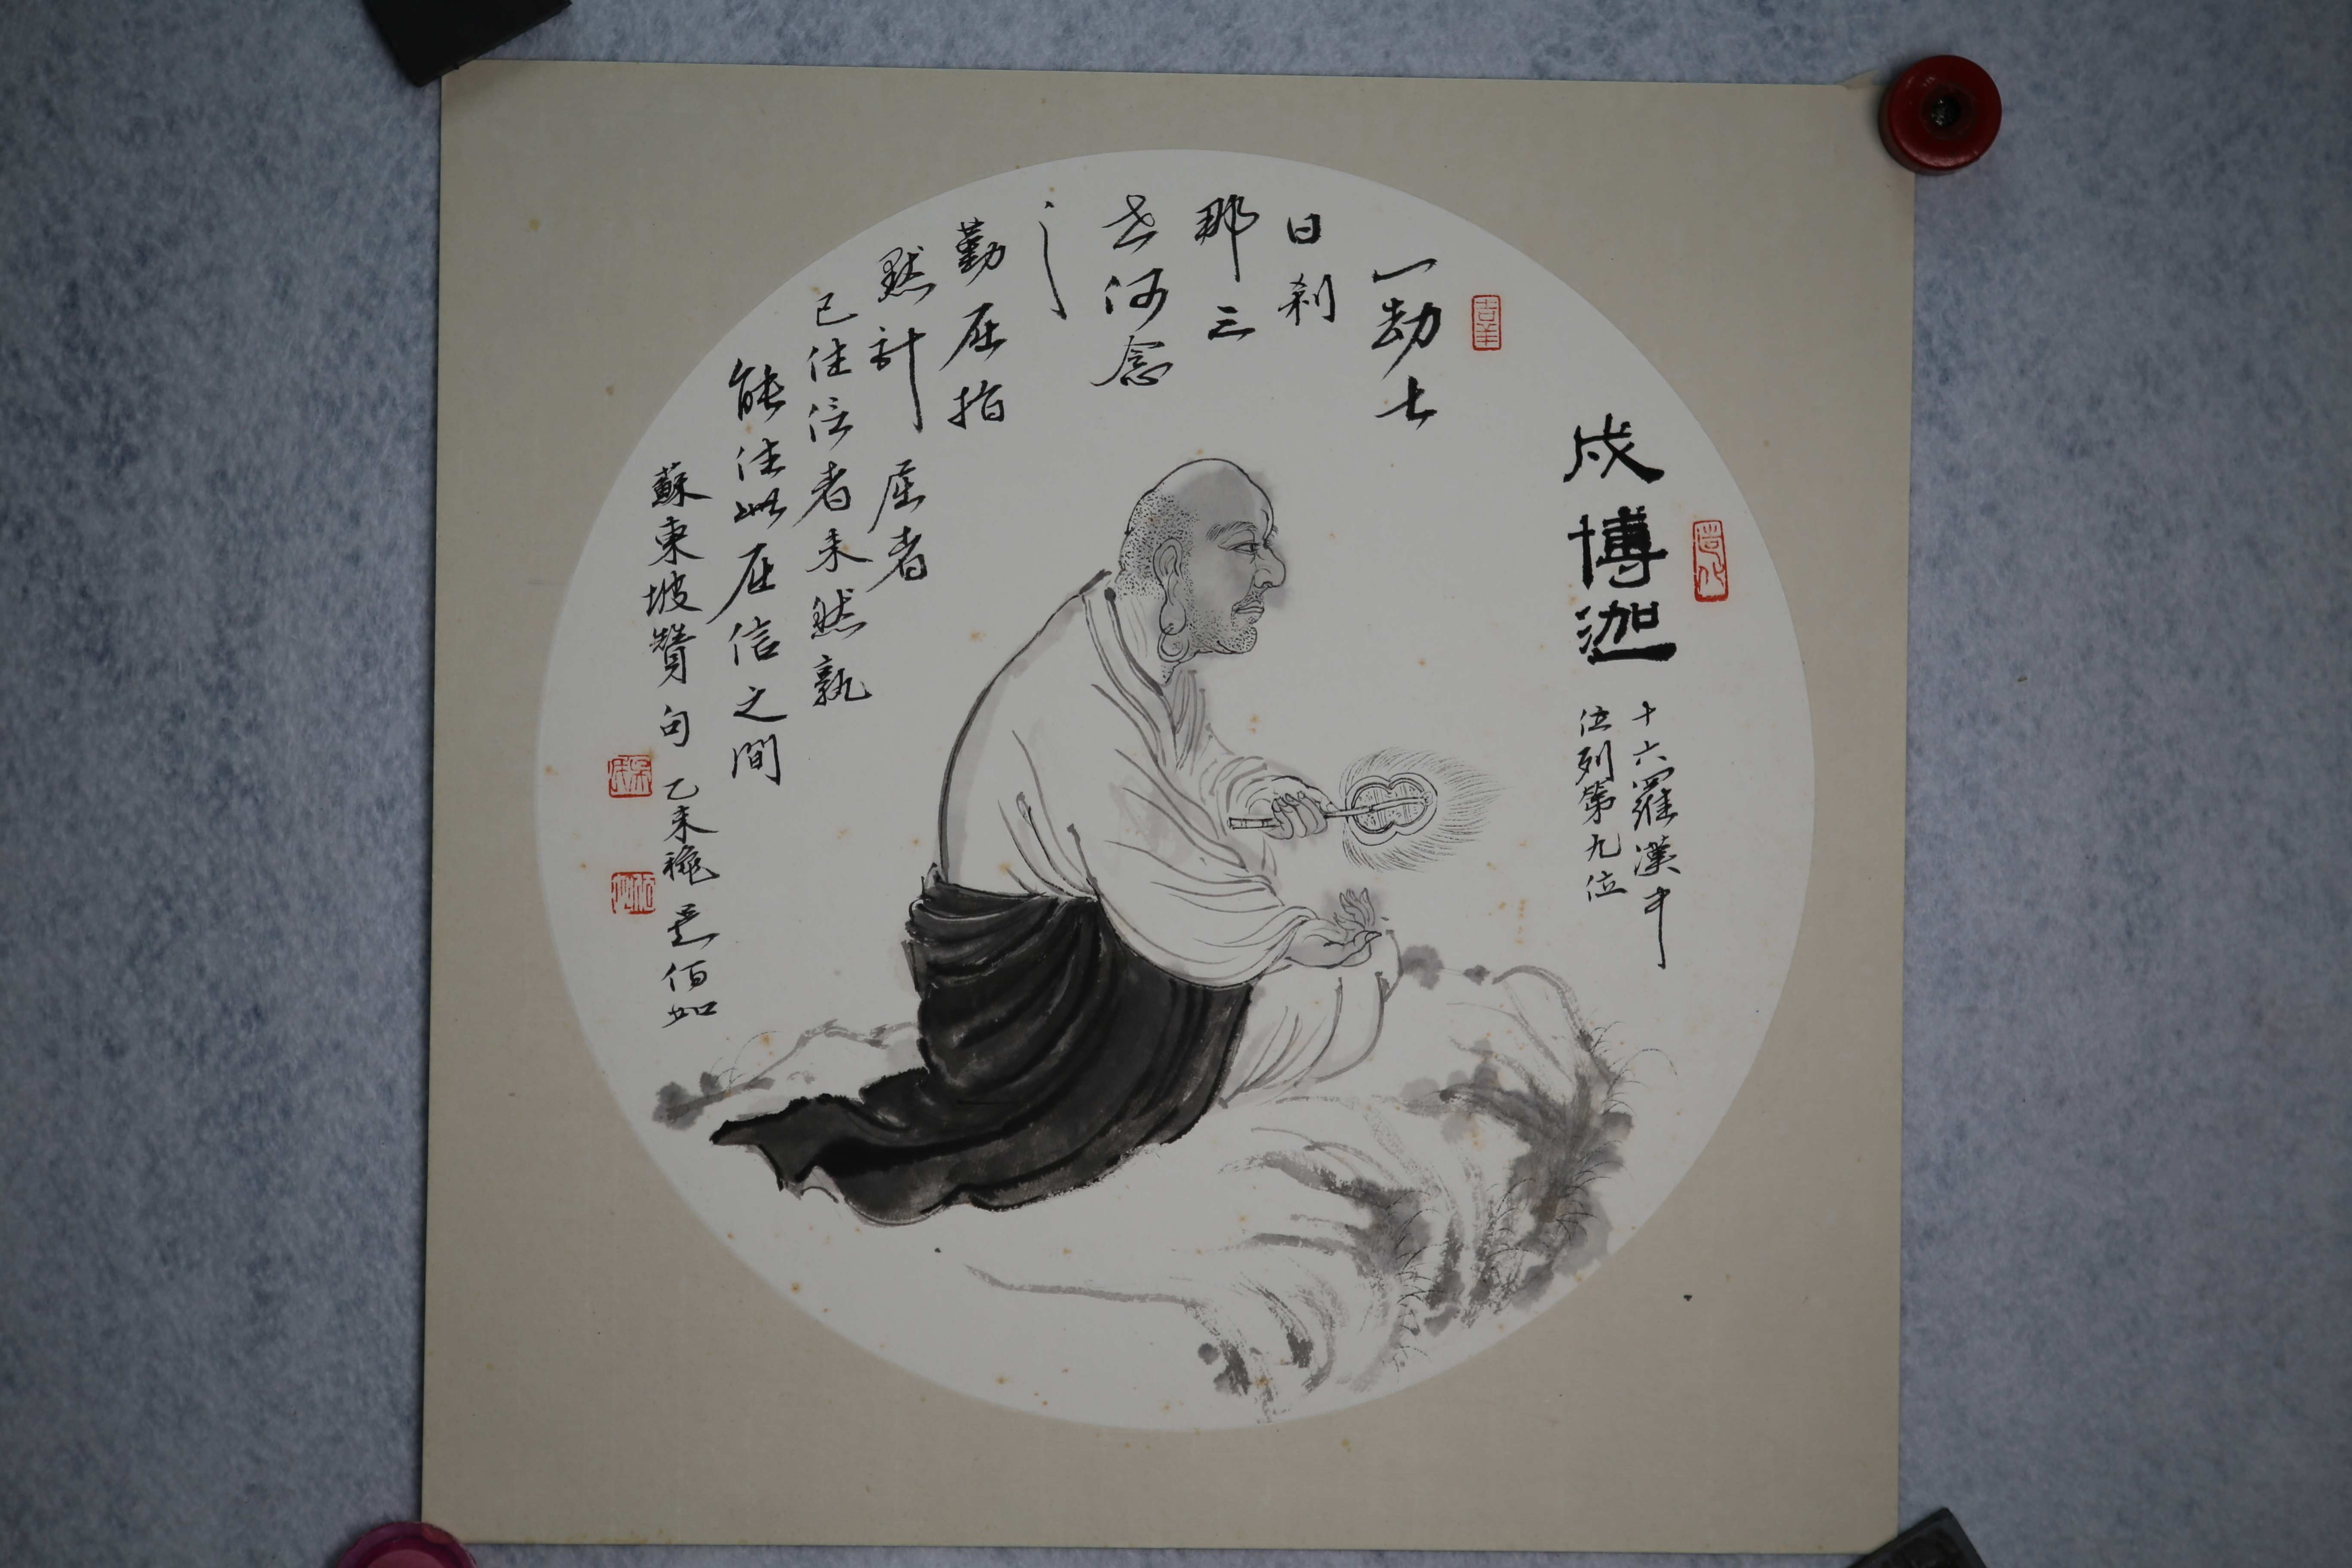 戍博迦
十六羅漢中
位列第九位
一劫七
日刹
那三
世何念
之
勤屈指
默計屈者
已往信者未然孰
能住此屈信之間
蘇東坡贊句 乙未 佰如
吉羊